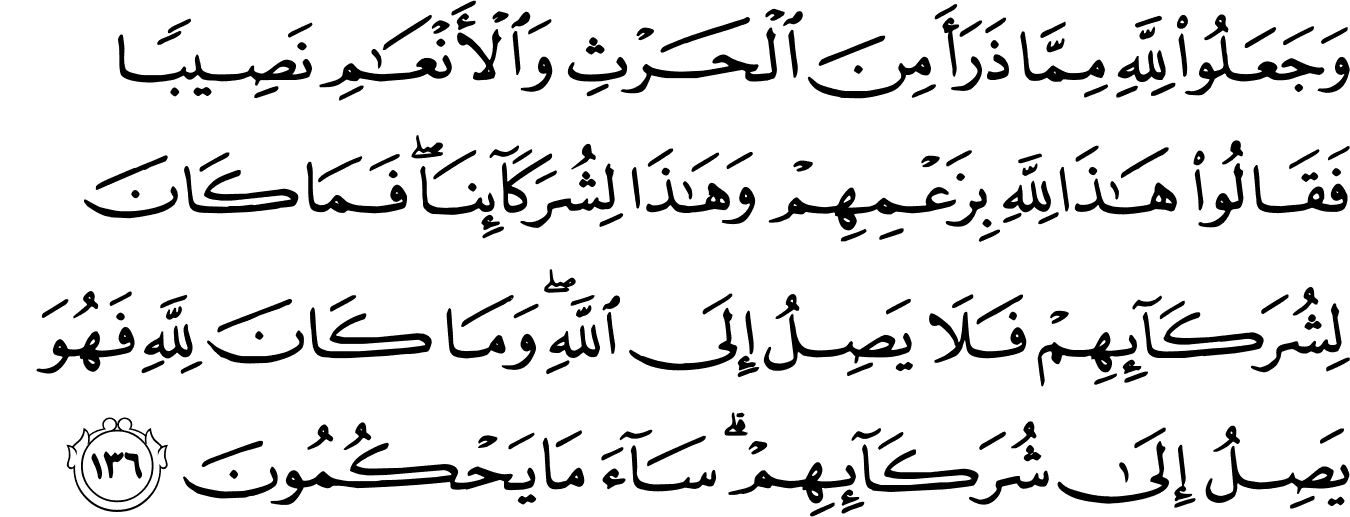 وَجَعَلُوا۟ لِلَّهِ مِمَّا ذَرَأَ مِنَ ٱلْحَرْثِ وَٱلْأَنْعَـٰمِ نَصِيبًا
فَقَالُوا۟ هَـٰذَا لِلَّهِ بِزَعْمِهِمْ وَهَـٰذَا لِشُرَكَآئِنَا ۖ فَمَا كَانَ
لِشُرَكَآئِهِمْ فَلَا يَصِلُ إِلَى ٱللَّهِ ۖ وَمَا كَانَ لِلَّهِ فَهُوَ
يَصِلُ إِلَىٰ شُرَكَآئِهِمْ ۗ سَآءَ مَا يَحْكُمُونَ ١٣٦